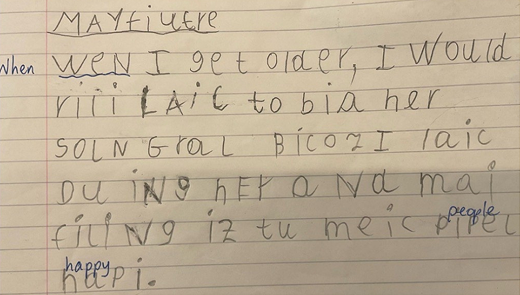 MAYfiutre
When WeN I get older, I Would
riii LAiC to bia her
SOLN GraL BicozI laic
DU iNg hEr a Nd mai
people
filiNg iz tu meic pipel
happy
hapi.